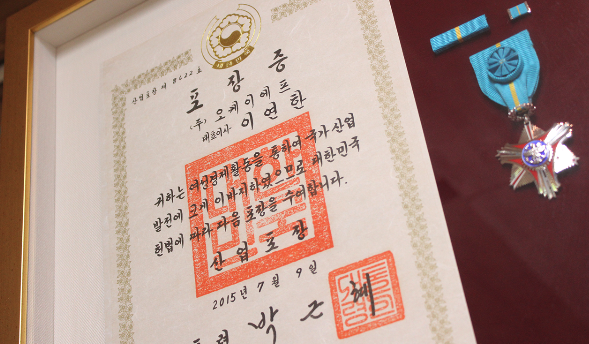 대한민국
산업포장 제 8622 호
포장증
(주) 오케이에프
대표이사 이연한
귀하는 여성경제활동을 통하여 국가산업
발전에 크게 이바지하였으므로 대한민국
헌법에 따라 다음 포장을 수여합니다.
산업포장
2015년 7월 9일
통령 박근혜